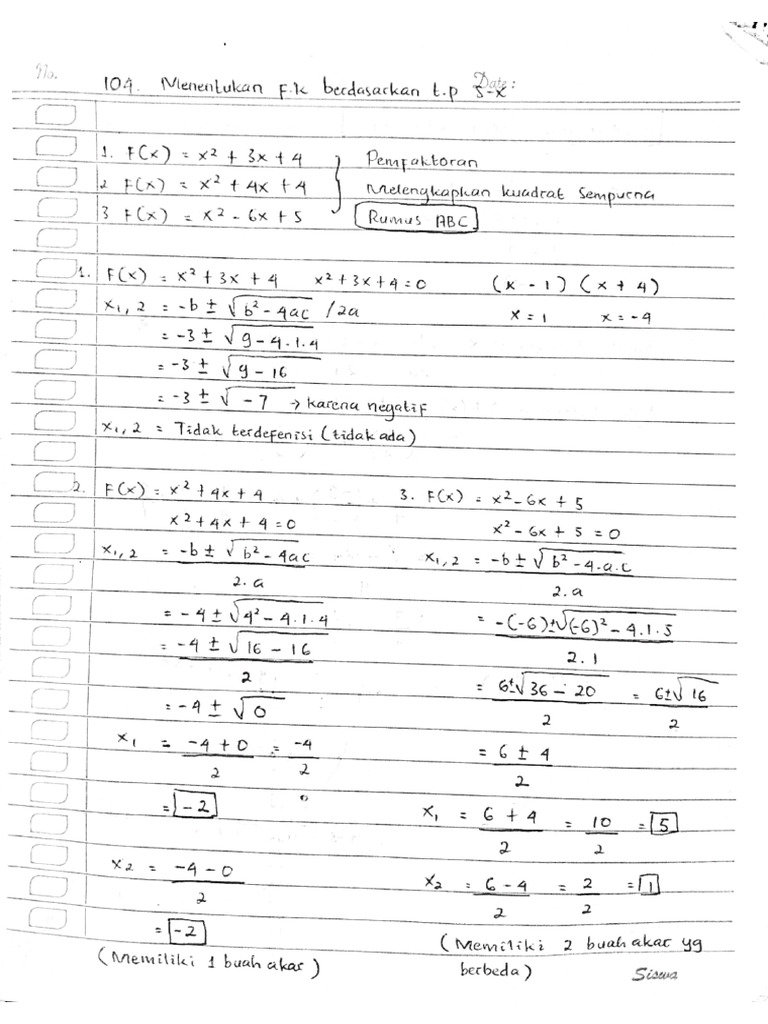 No.
Date:
104. Menentukan F.K berdasarkan t.p S-X
1. F(x) = x² + 3x + 4
2 F(x) = x² + 4x + 4
3 F(x) = x² - 6x + 5
Pemfaktoran
Melengkapkan kuadrat sempurna
Rumus ABC
1. F(x) = x² + 3x + 4 x² + 3x + 4 = 0 (x - 1) (x + 4)
x1,2 = -b ± √b² - 4ac /2a x = 1 x = -4
= -3 ± √9 - 4.1.4
= -3 ± √9 - 16
= -3 ± √-7 → karena negatif
x1,2 = Tidak terdefenisi (tidak ada)
2. F(x) = x² + 4x + 4
x² + 4x + 4 = 0
x1,2 = -b ± √b² - 4ac
2.a
= -4 ± √4² - 4.1.4
= -4 ± √16 - 16
2
= -4 ± √0
x1 = -4 + 0 = -4
2 2
= -2
x2 = -4 - 0
2
= -2
(Memiliki 1 buah akar)
3. F(x) = x² - 6x + 5
x² - 6x + 5 = 0
x1,2 = -b ± √b² - 4.a.c
2.a
= -(-6) ± √(-6)² - 4.1.5
2.1
= 6 ± √36 - 20 = 6 ± √16
2 2
= 6 ± 4
2
x1 = 6 + 4 = 10 = 5
2 2
x2 = 6 - 4 = 2 = 1
2 2
(Memiliki 2 buah akar yg
berbeda)
Siswa